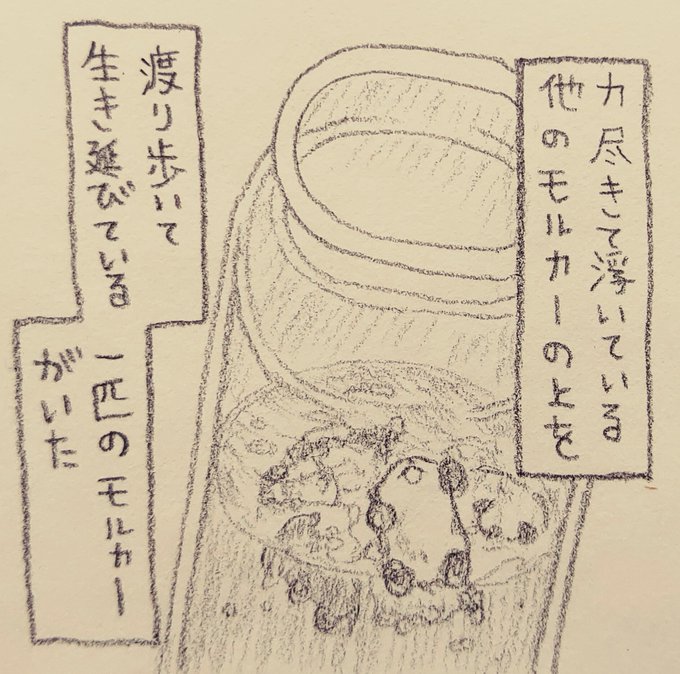 力尽きて浮いている
他のモルカーの上を
渡り歩いて
生き延びている
一匹のモルカー
がいた